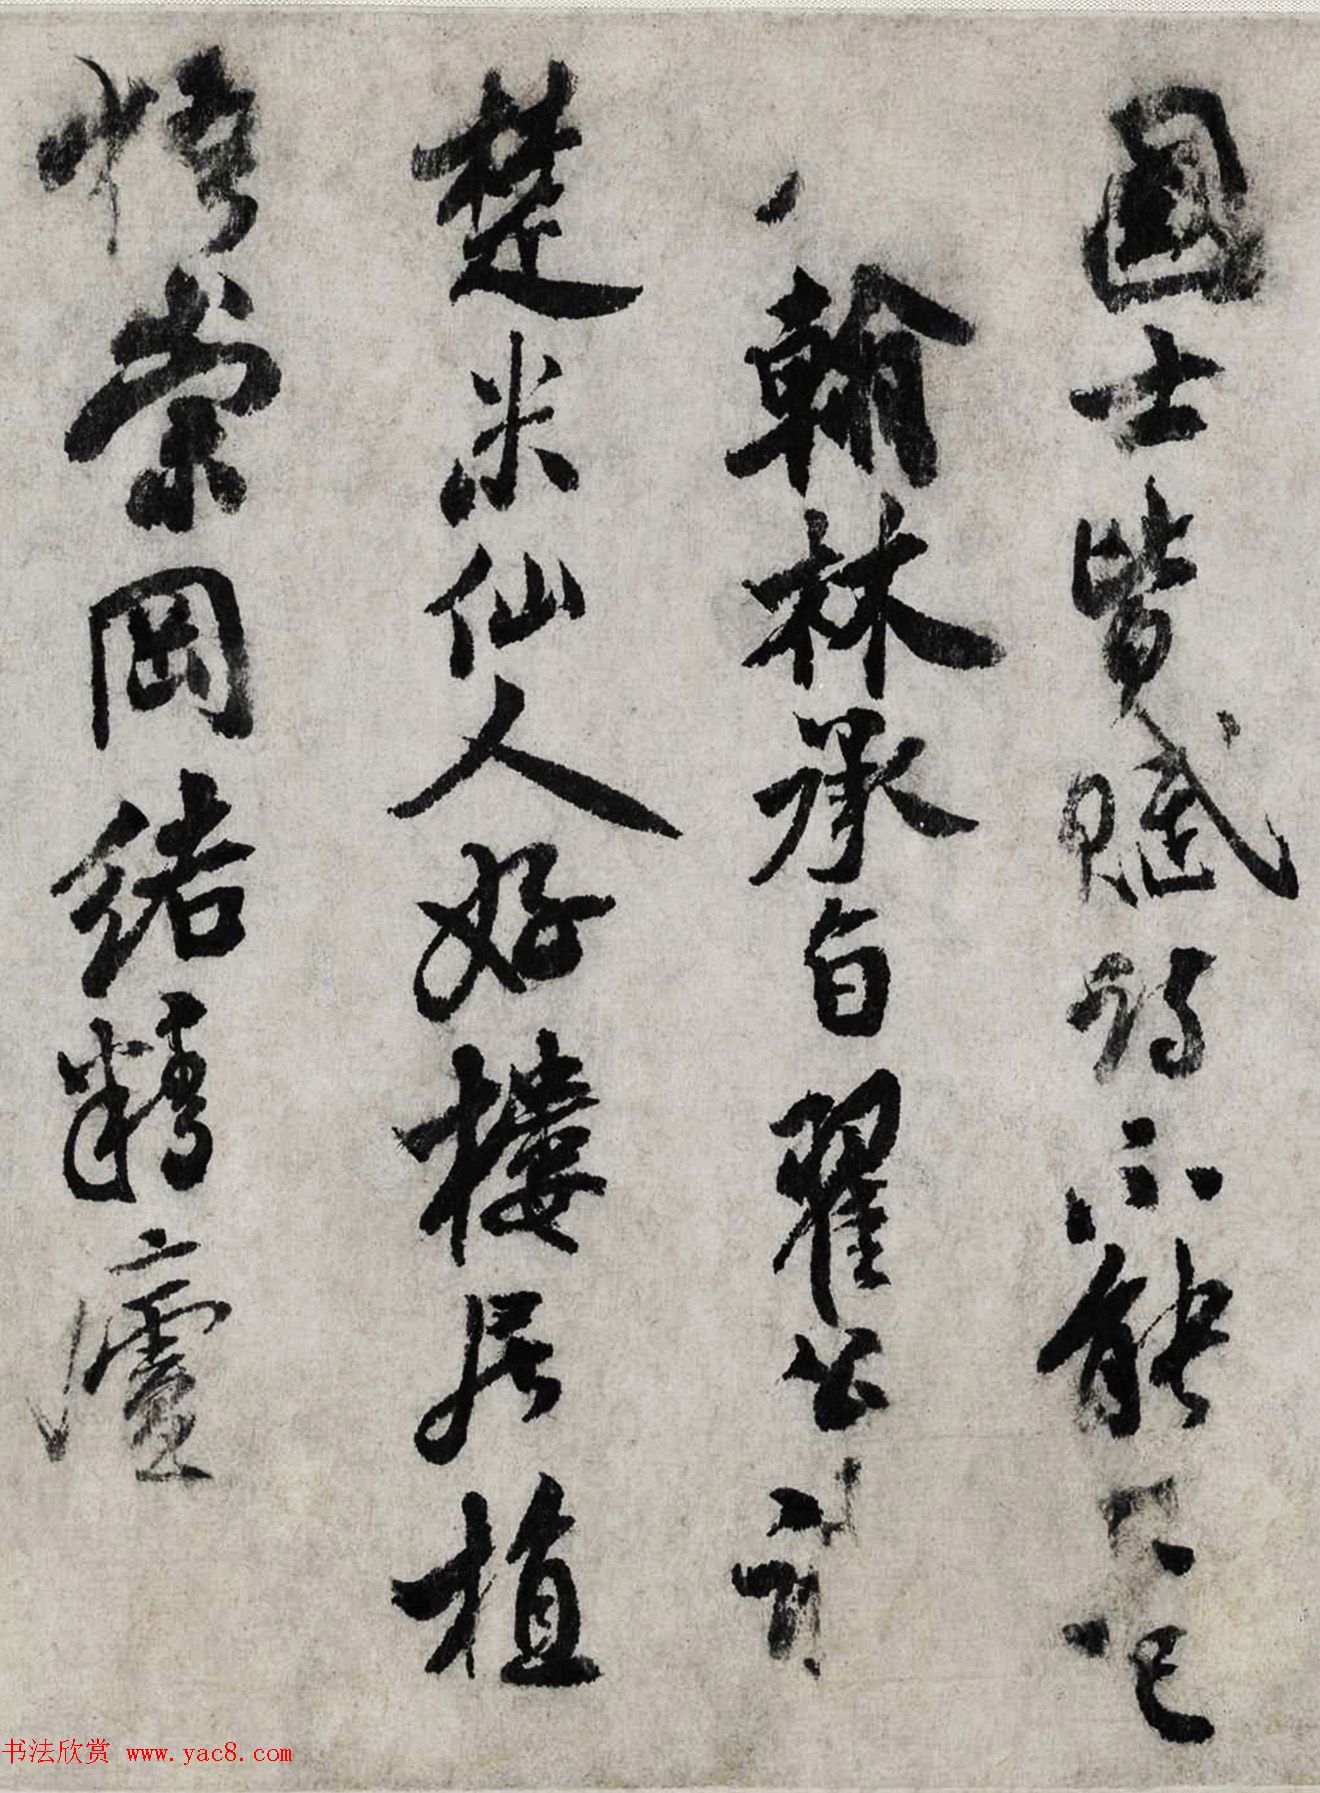 國士皆賦詩不能盡記
翰林承旨翟公詩
楚米仙人好樓居植
梧崇岡結精廬
书法欣赏 www.yac8.com